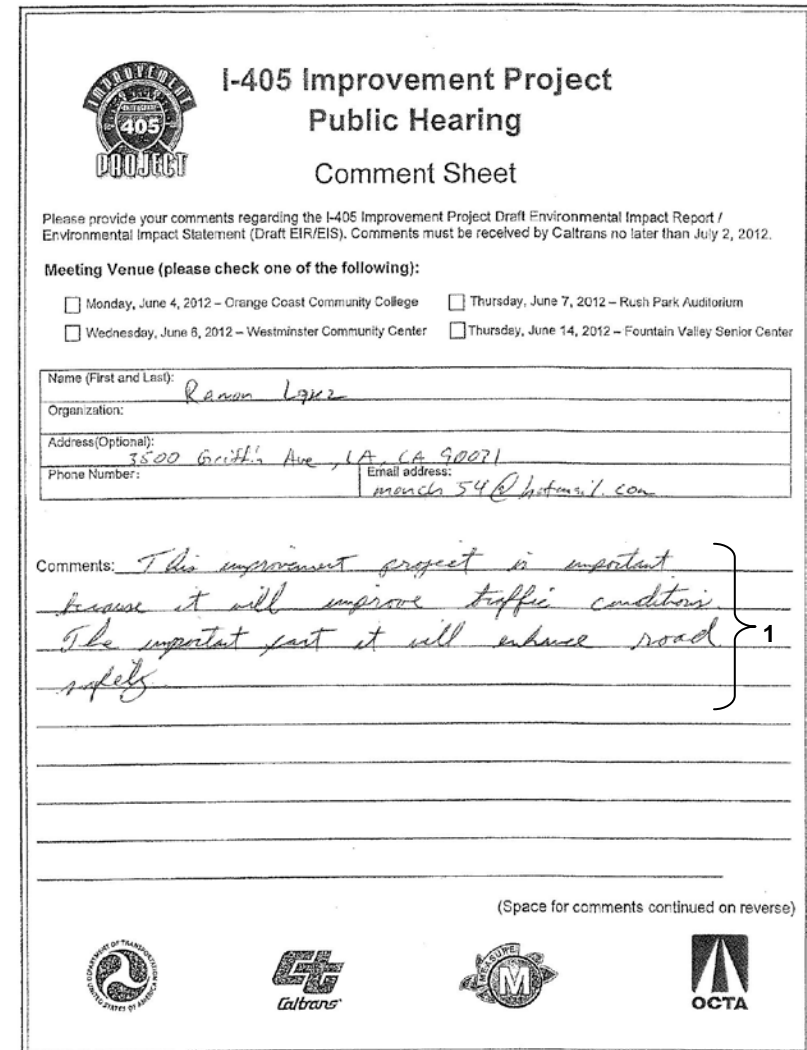 IMPROVEMENT
405
PROJECT
I-405 Improvement Project
Public Hearing
Comment Sheet
Please provide your comments regarding the I-405 Improvement Project Draft Environmental Impact Report /
Environmental Impact Statement (Draft EIR/EIS). Comments must be received by Caltrans no later than July 2, 2012.
Meeting Venue (please check one of the following):
Monday, June 4, 2012 – Orange Coast Community College
Thursday, June 7, 2012 – Rush Park Auditorium
Wednesday, June 6, 2012 – Westminster Community Center
Thursday, June 14, 2012 – Fountain Valley Senior Center
Name (First and Last): Ramon Lopez
Organization:
Address(Optional): 3500 Griffin Ave, LA, CA 90031
Phone Number:
Email address: monch54@hotmail.com
Comments: This improvement project is important
because it will improve traffic conditions.
The important part it will enhance road
safety
1
(Space for comments continued on reverse)
DEPARTMENT OF TRANSPORTATION
UNITED STATES OF AMERICA
Caltrans
MEASURE
M
OCTA